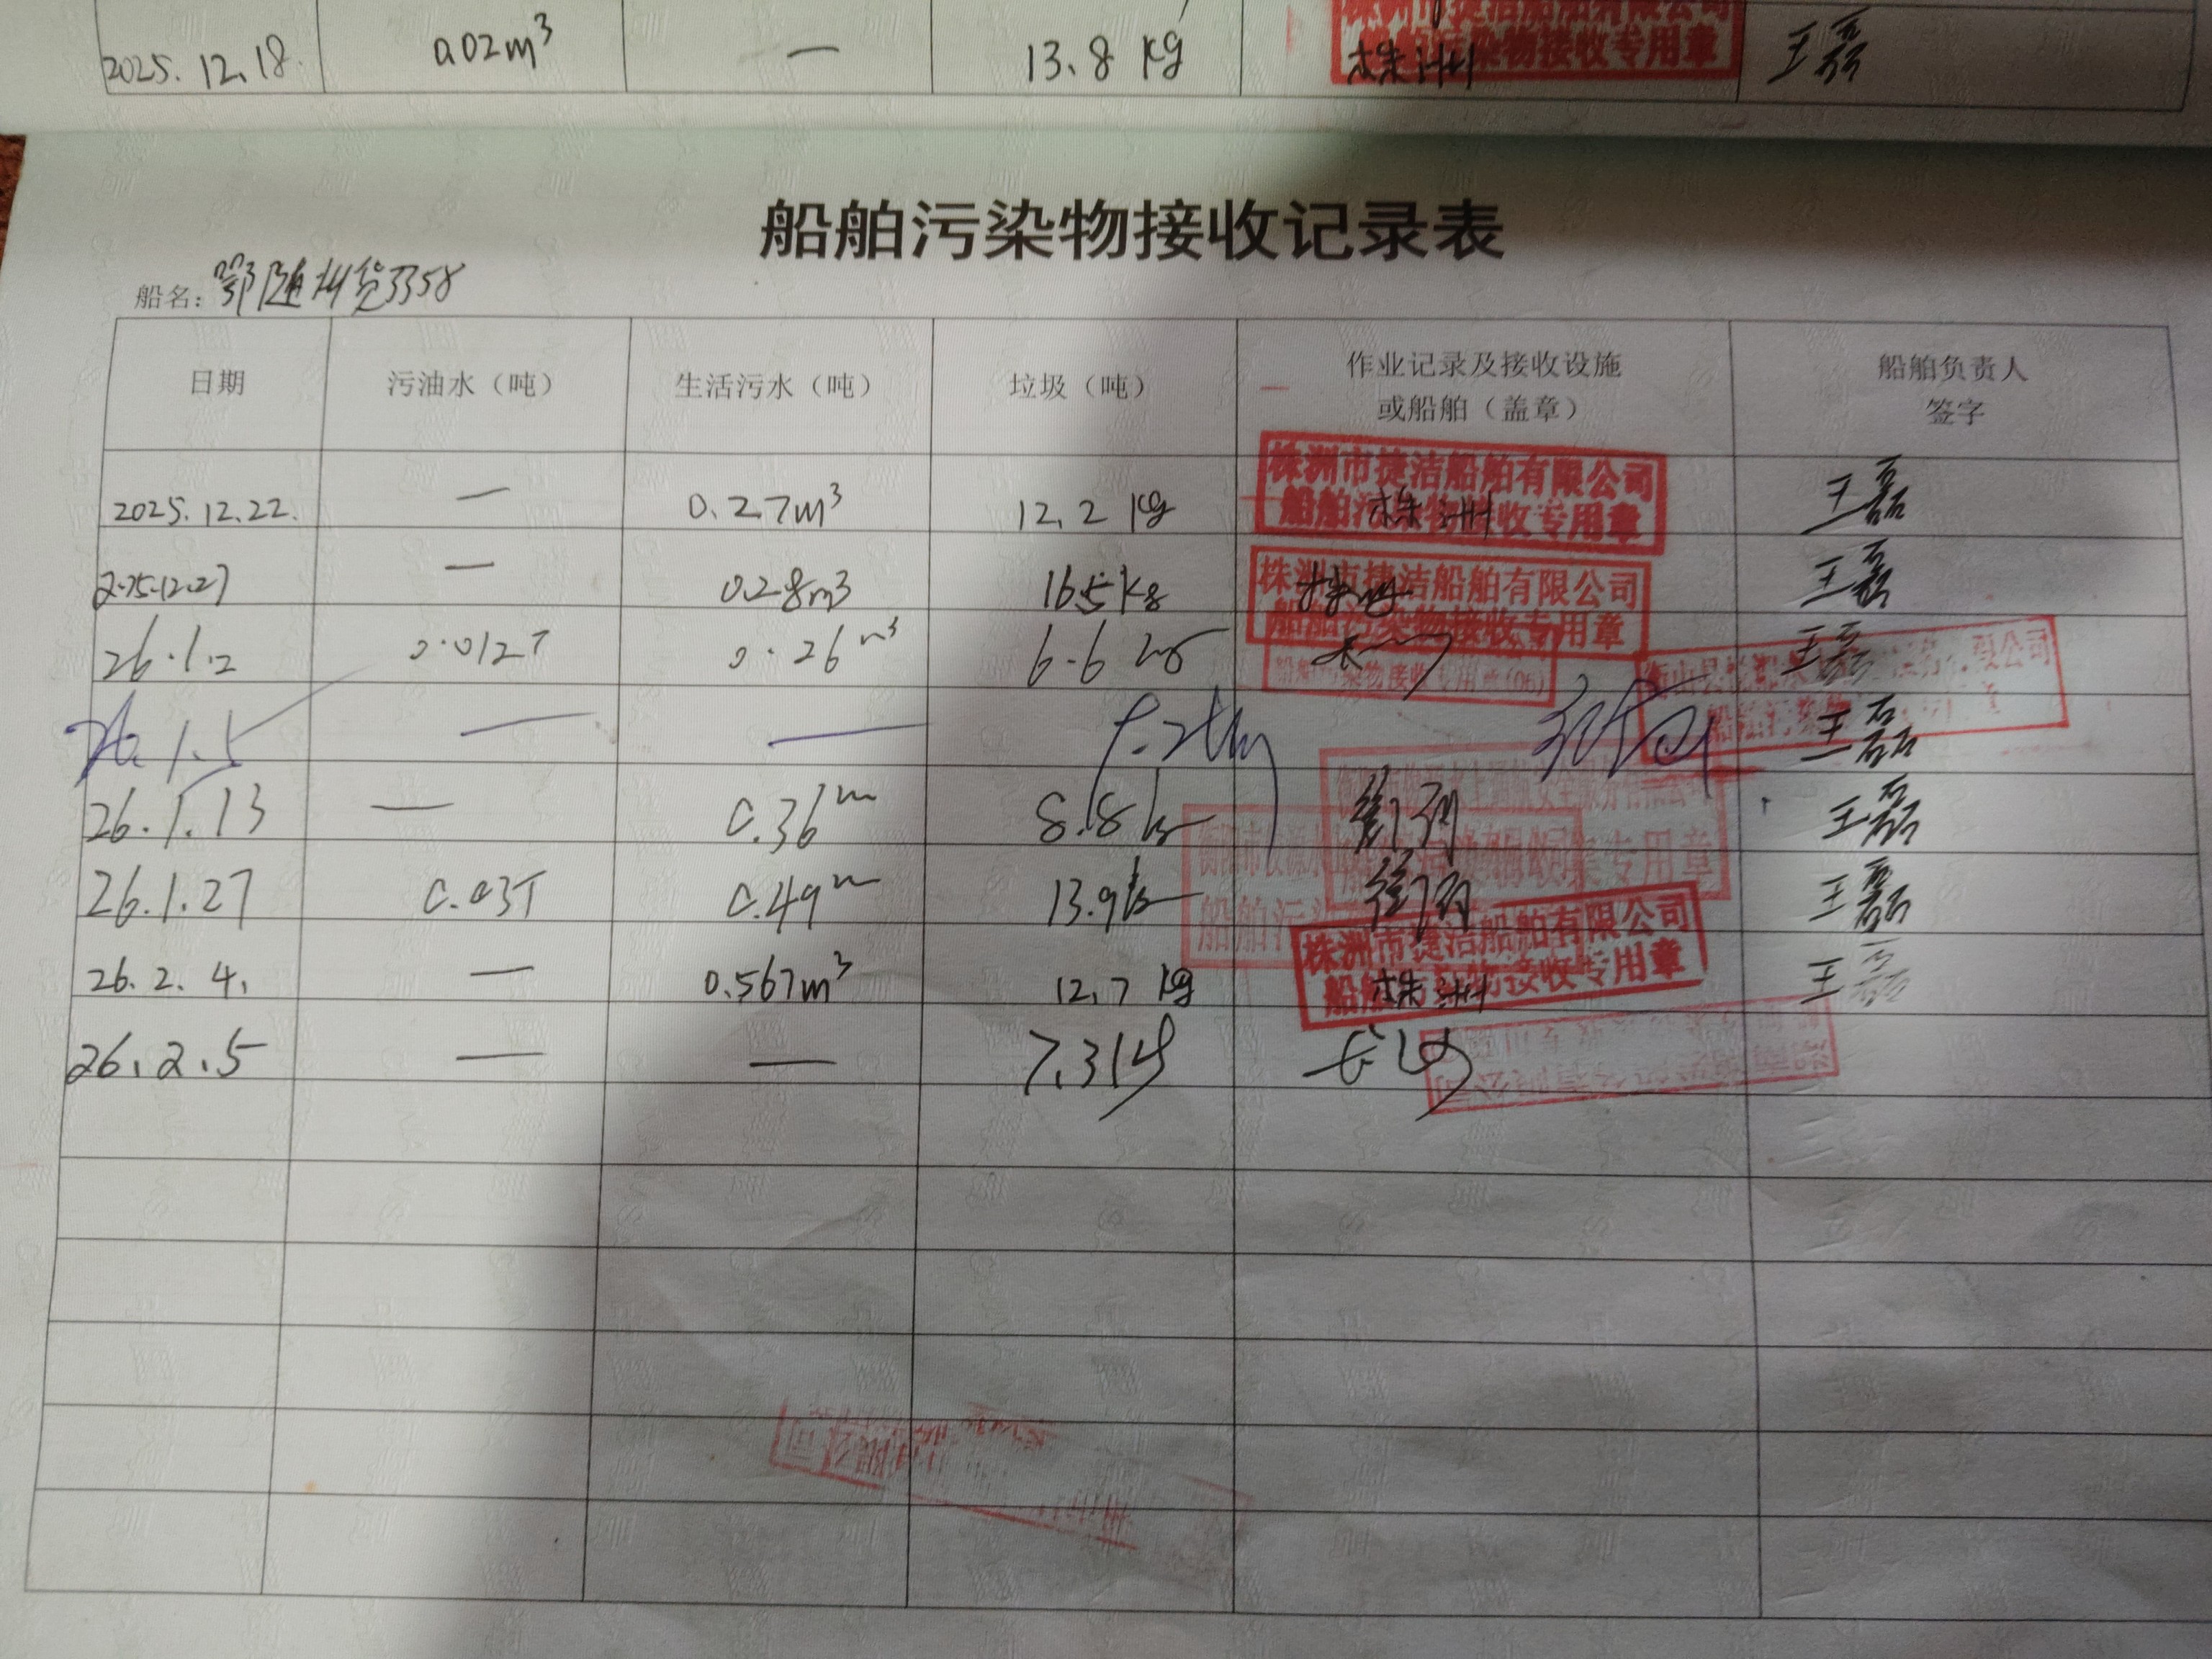 2025.12.18. 0.02m³ — 13.8 kg 株洲 王磊
船舶污染物接收专用章
船舶污染物接收记录表
船名：鄂随州货3358
日期 污油水（吨） 生活污水（吨） 垃圾（吨） 作业记录及接收设施或船舶（盖章） 船舶负责人签字
2025.12.22. — 0.27m³ 12.2 kg 株洲 王磊
株洲市捷洁船舶有限公司
船舶污染物接收专用章
2025.12.27 — 0.28m3 16.5kg 株洲 王磊
株洲市捷洁船舶有限公司
船舶污染物接收专用章
26.1.2 0.012T 0.26m³ 6.6 kg 王磊
船舶污染物接收专用章(06)
26.1.5 — — 王磊
26.1.13 — 0.36m 8.8kg 王磊
26.1.27 0.03T 0.49m 13.9kg 王磊
26.2.4. — 0.567m³ 12.7 kg 株洲 王磊
株洲市捷洁船舶有限公司
船舶污染物接收专用章
26.2.5 — — 7.3kg 长沙